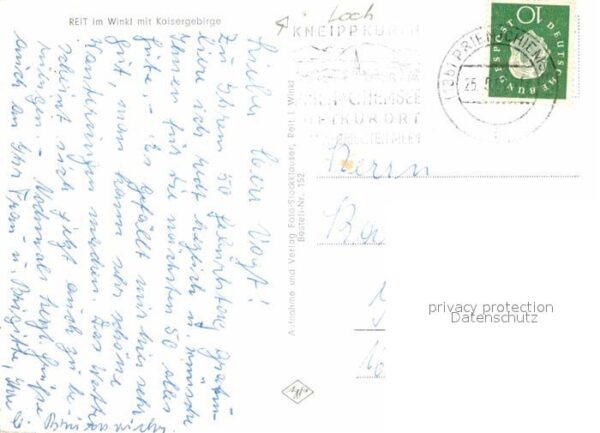 REIT im Winkl mit Kaisergebirge
Loch
KNEIPPKURORT
PRIEN CHIEMSEE
LUFTKURORT
(13b) PRIEN CHIEMSEE
25. 5.
DEUTSCHE
BUNDESPOST
10
Aufnahme und Verlag Foto-Stockklauser, Reit i. Winkl
Bestell-Nr. 152
Agfa
Lieber Herr Voigt!
Zu Ihrem 50. Geburtstag gratuliere
ich recht herzlich u. wünsche
Ihnen für die nächsten 50 alles
Gute. - Es gefällt mir hier sehr
gut, man kann sehr schöne
Wanderungen machen. Das Wetter
scheint sich jetzt auch zu
- Nochmals herzl. Grüße
auch an Ihre Frau u. Brigitte, Ihre
Herrn
privacy protection
Datenschutz